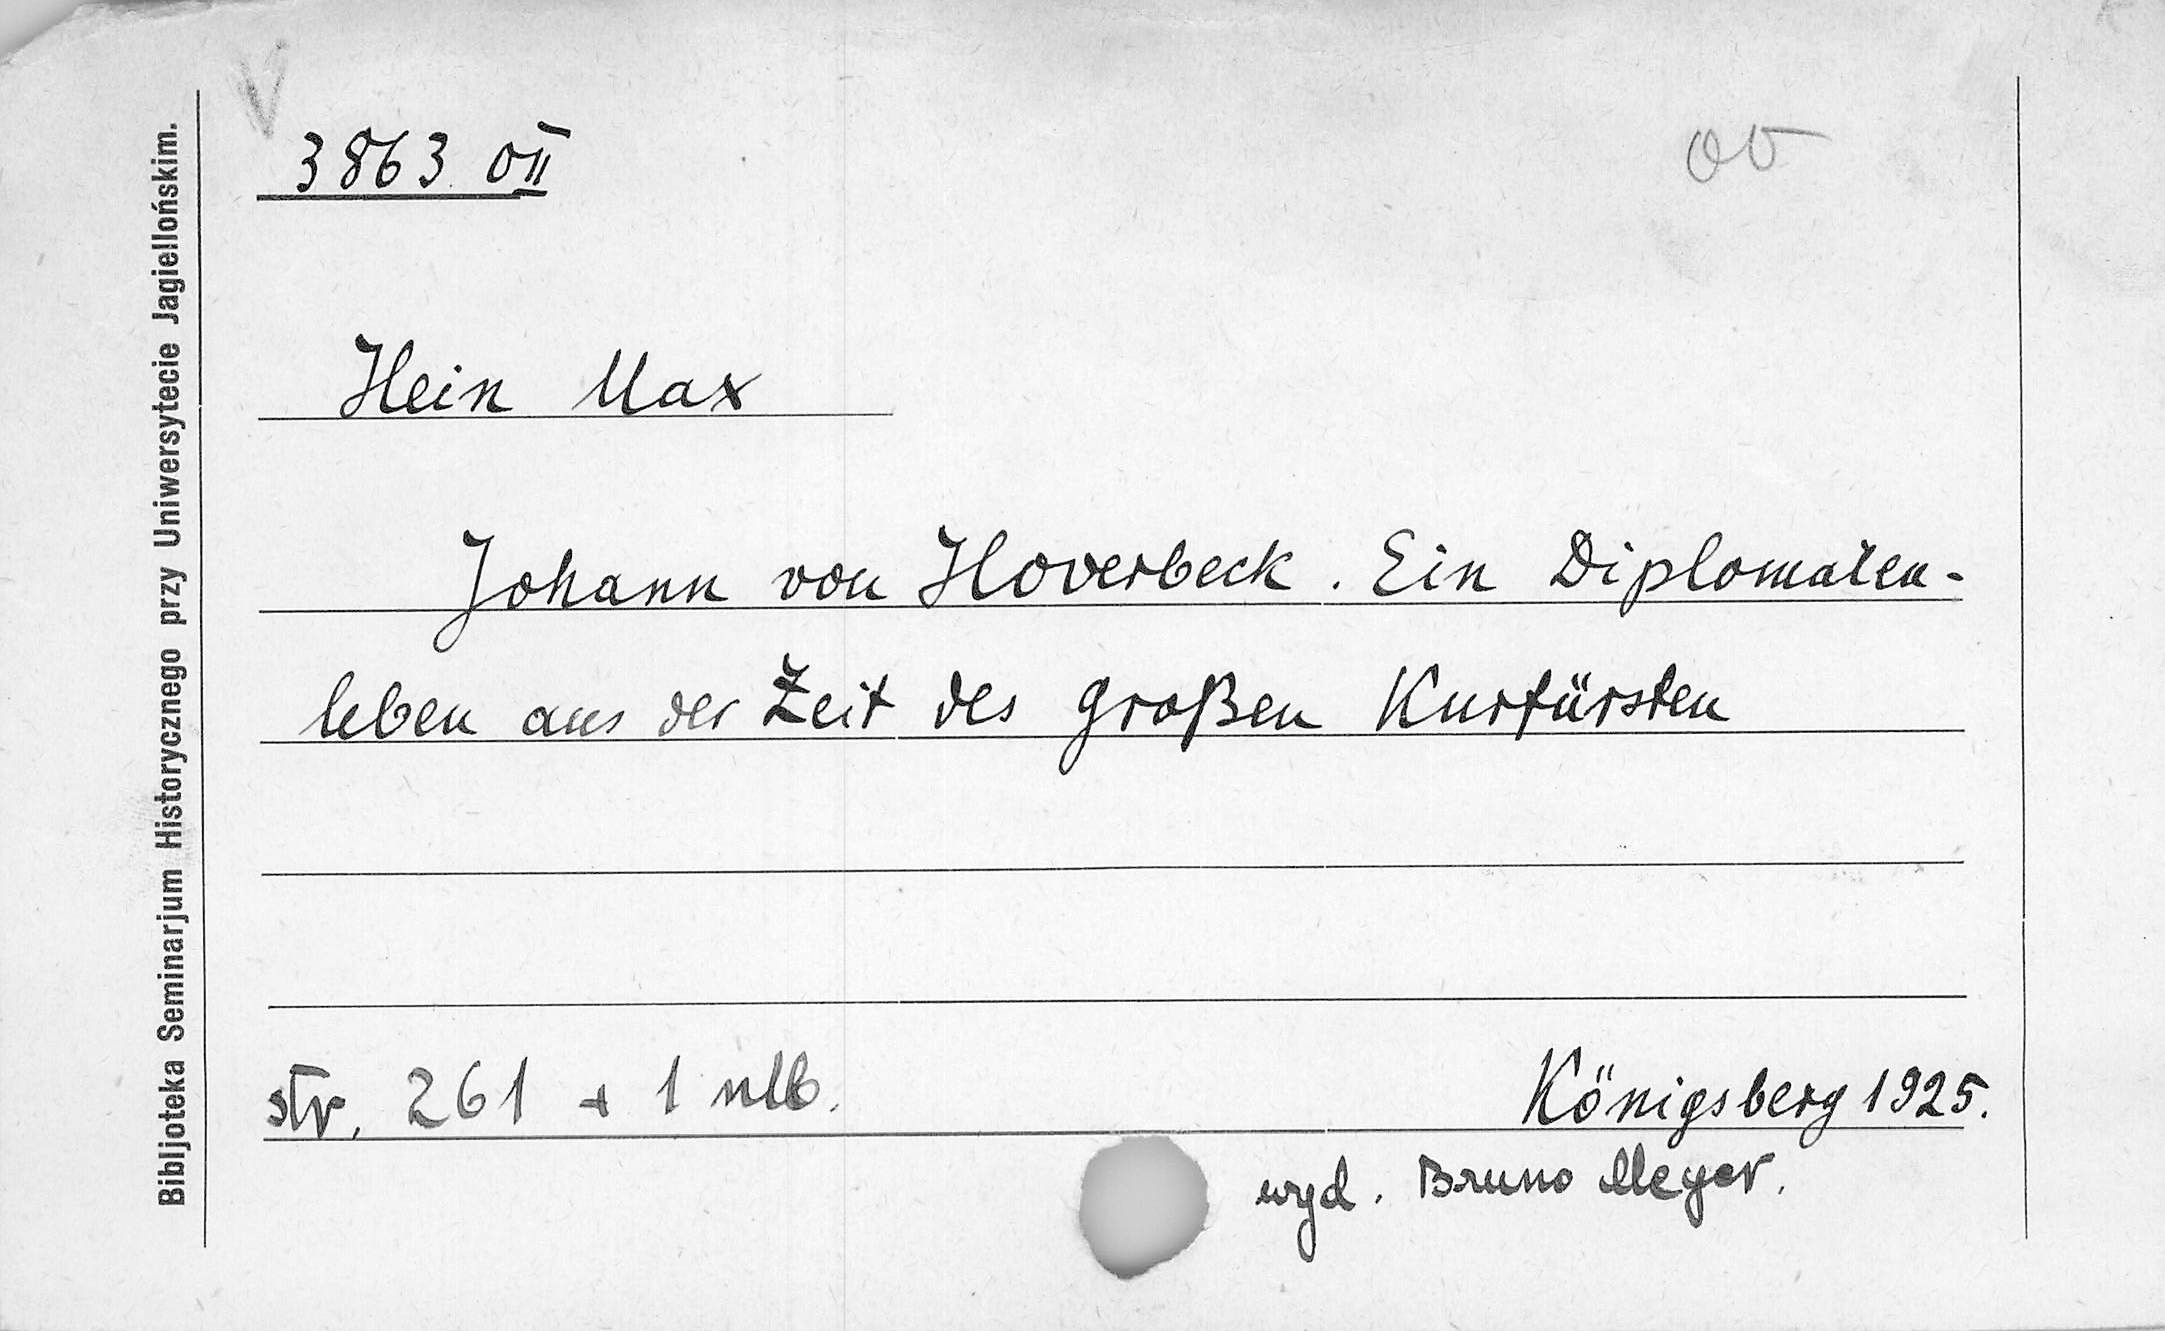 Bibljoteka Seminarjum Historycznego przy Uniwersytecie Jagiellońskim.
V
3863 OII
Hein Max
Johann von Hoverbeck. Ein Diplomaten-
leben aus der Zeit des großen Kurfürsten
str. 261 + 1 nlb.
Königsberg 1925.
wyd. Bruno Meyer.